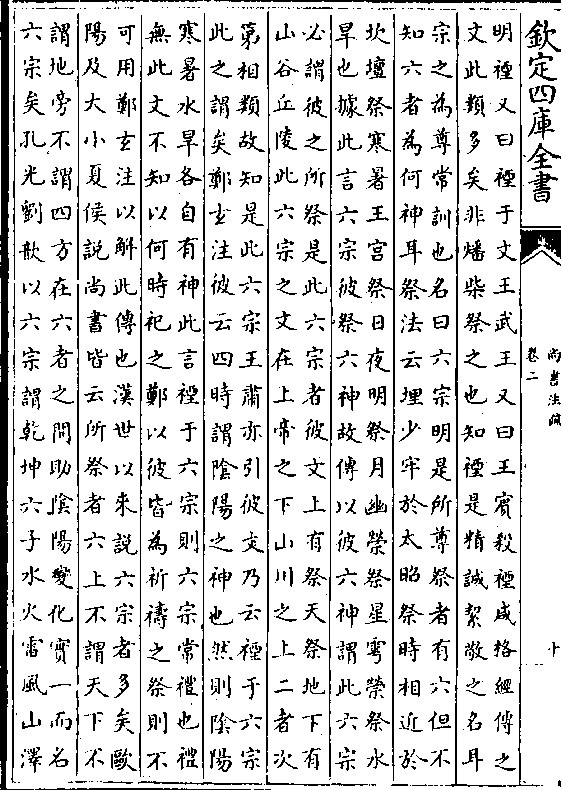 欽定四庫全書
尚書注疏
卷二
十
明禋又曰禋于文王武王又曰王賓殺禋咸格經傳之
文此類多矣非燔柴祭之也知禋是精誠絜敬之名耳
宗之為尊常訓也名曰六宗明是所尊祭者有六但不
知六者為何神耳祭法云埋少牢於太昭祭時相近於
坎壇祭寒暑王宮祭日夜明祭月幽禜祭星雩禜祭水
旱也據此言六宗彼祭六神故傳以彼六神謂此六宗
必謂彼之所祭是此六宗者彼文上有祭天祭地下有
山谷丘陵此六宗之文在上帝之下山川之上二者次
第相類故知是此六宗王肅亦引彼文乃云禋于六宗
此之謂矣鄭玄注彼云四時謂陰陽之神也然則陰陽
寒暑水旱各自有神此言禋于六宗則六宗常禮也禮
無此文不知以何時祀之鄭以彼皆為祈禱之祭則不
可用鄭玄注以解此傳也漢世以來說六宗者多矣歐
陽及大小夏侯說尚書皆云所祭者六上不謂天下不
謂地旁不謂四方在六者之間助陰陽變化實一而名
六宗矣孔光劉歆以六宗謂乾坤六子水火雷風山澤